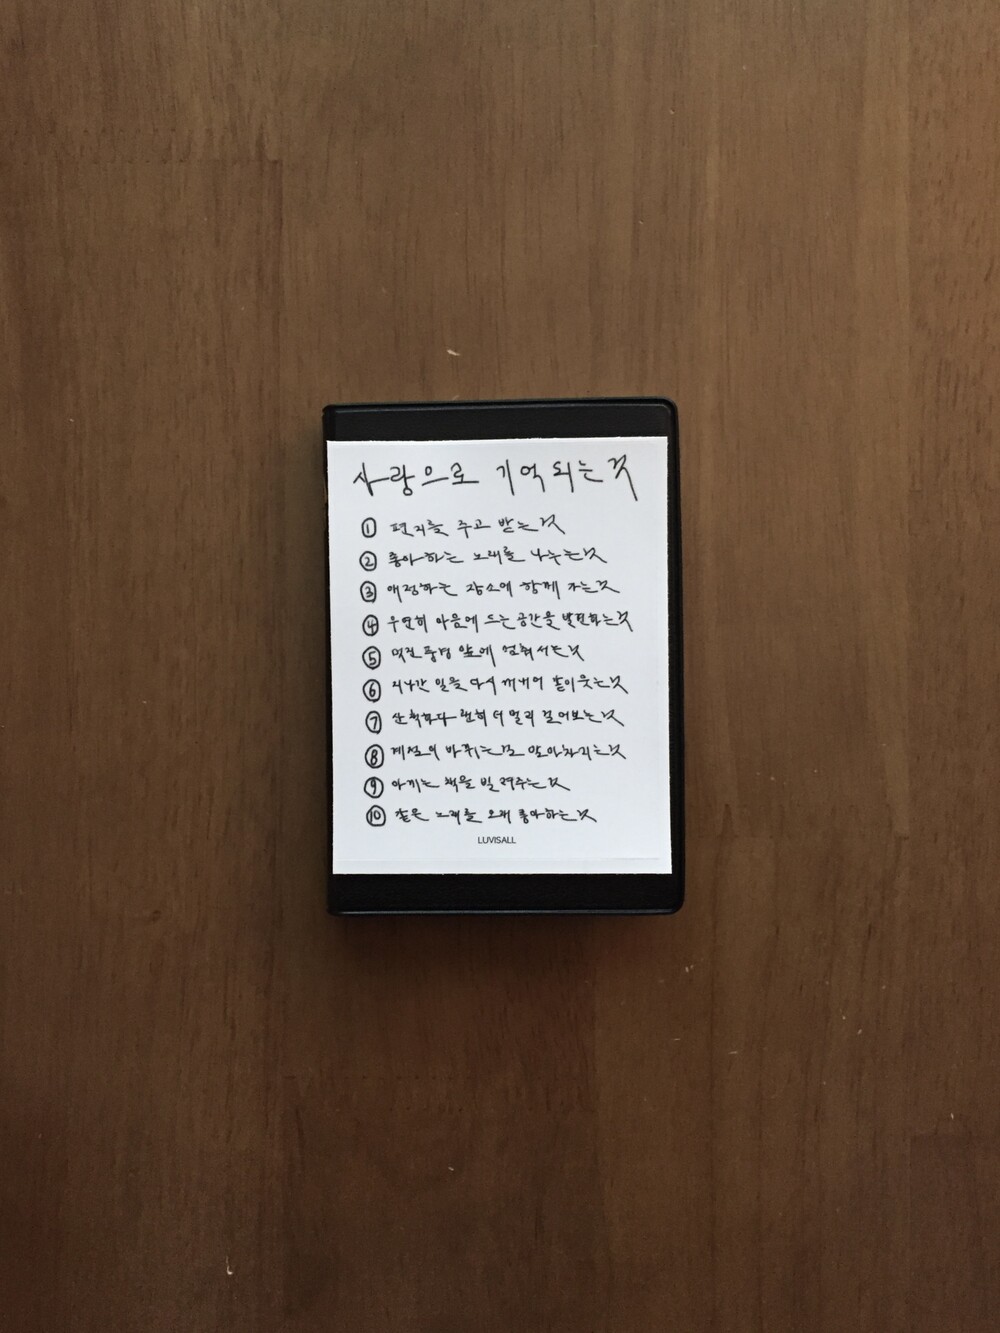 사랑으로 기억되는 것
① 편지를 주고 받는 것
② 좋아하는 노래를 나누는 것
③ 애정하는 장소에 함께 가는 것
④ 우연히 마음에 드는 공간을 발견하는 것
⑤ 멋진 풍경 앞에 멈춰서는 것
⑥ 지나간 일을 다시 꺼내어 같이 웃는 것
⑦ 산책하다 괜히 더 멀리 걸어보는 것
⑧ 계절이 바뀌는 걸 알아차리는 것
⑨ 아끼는 책을 빌려주는 것
⑩ 같은 노래를 오래 좋아하는 것
LUVISALL